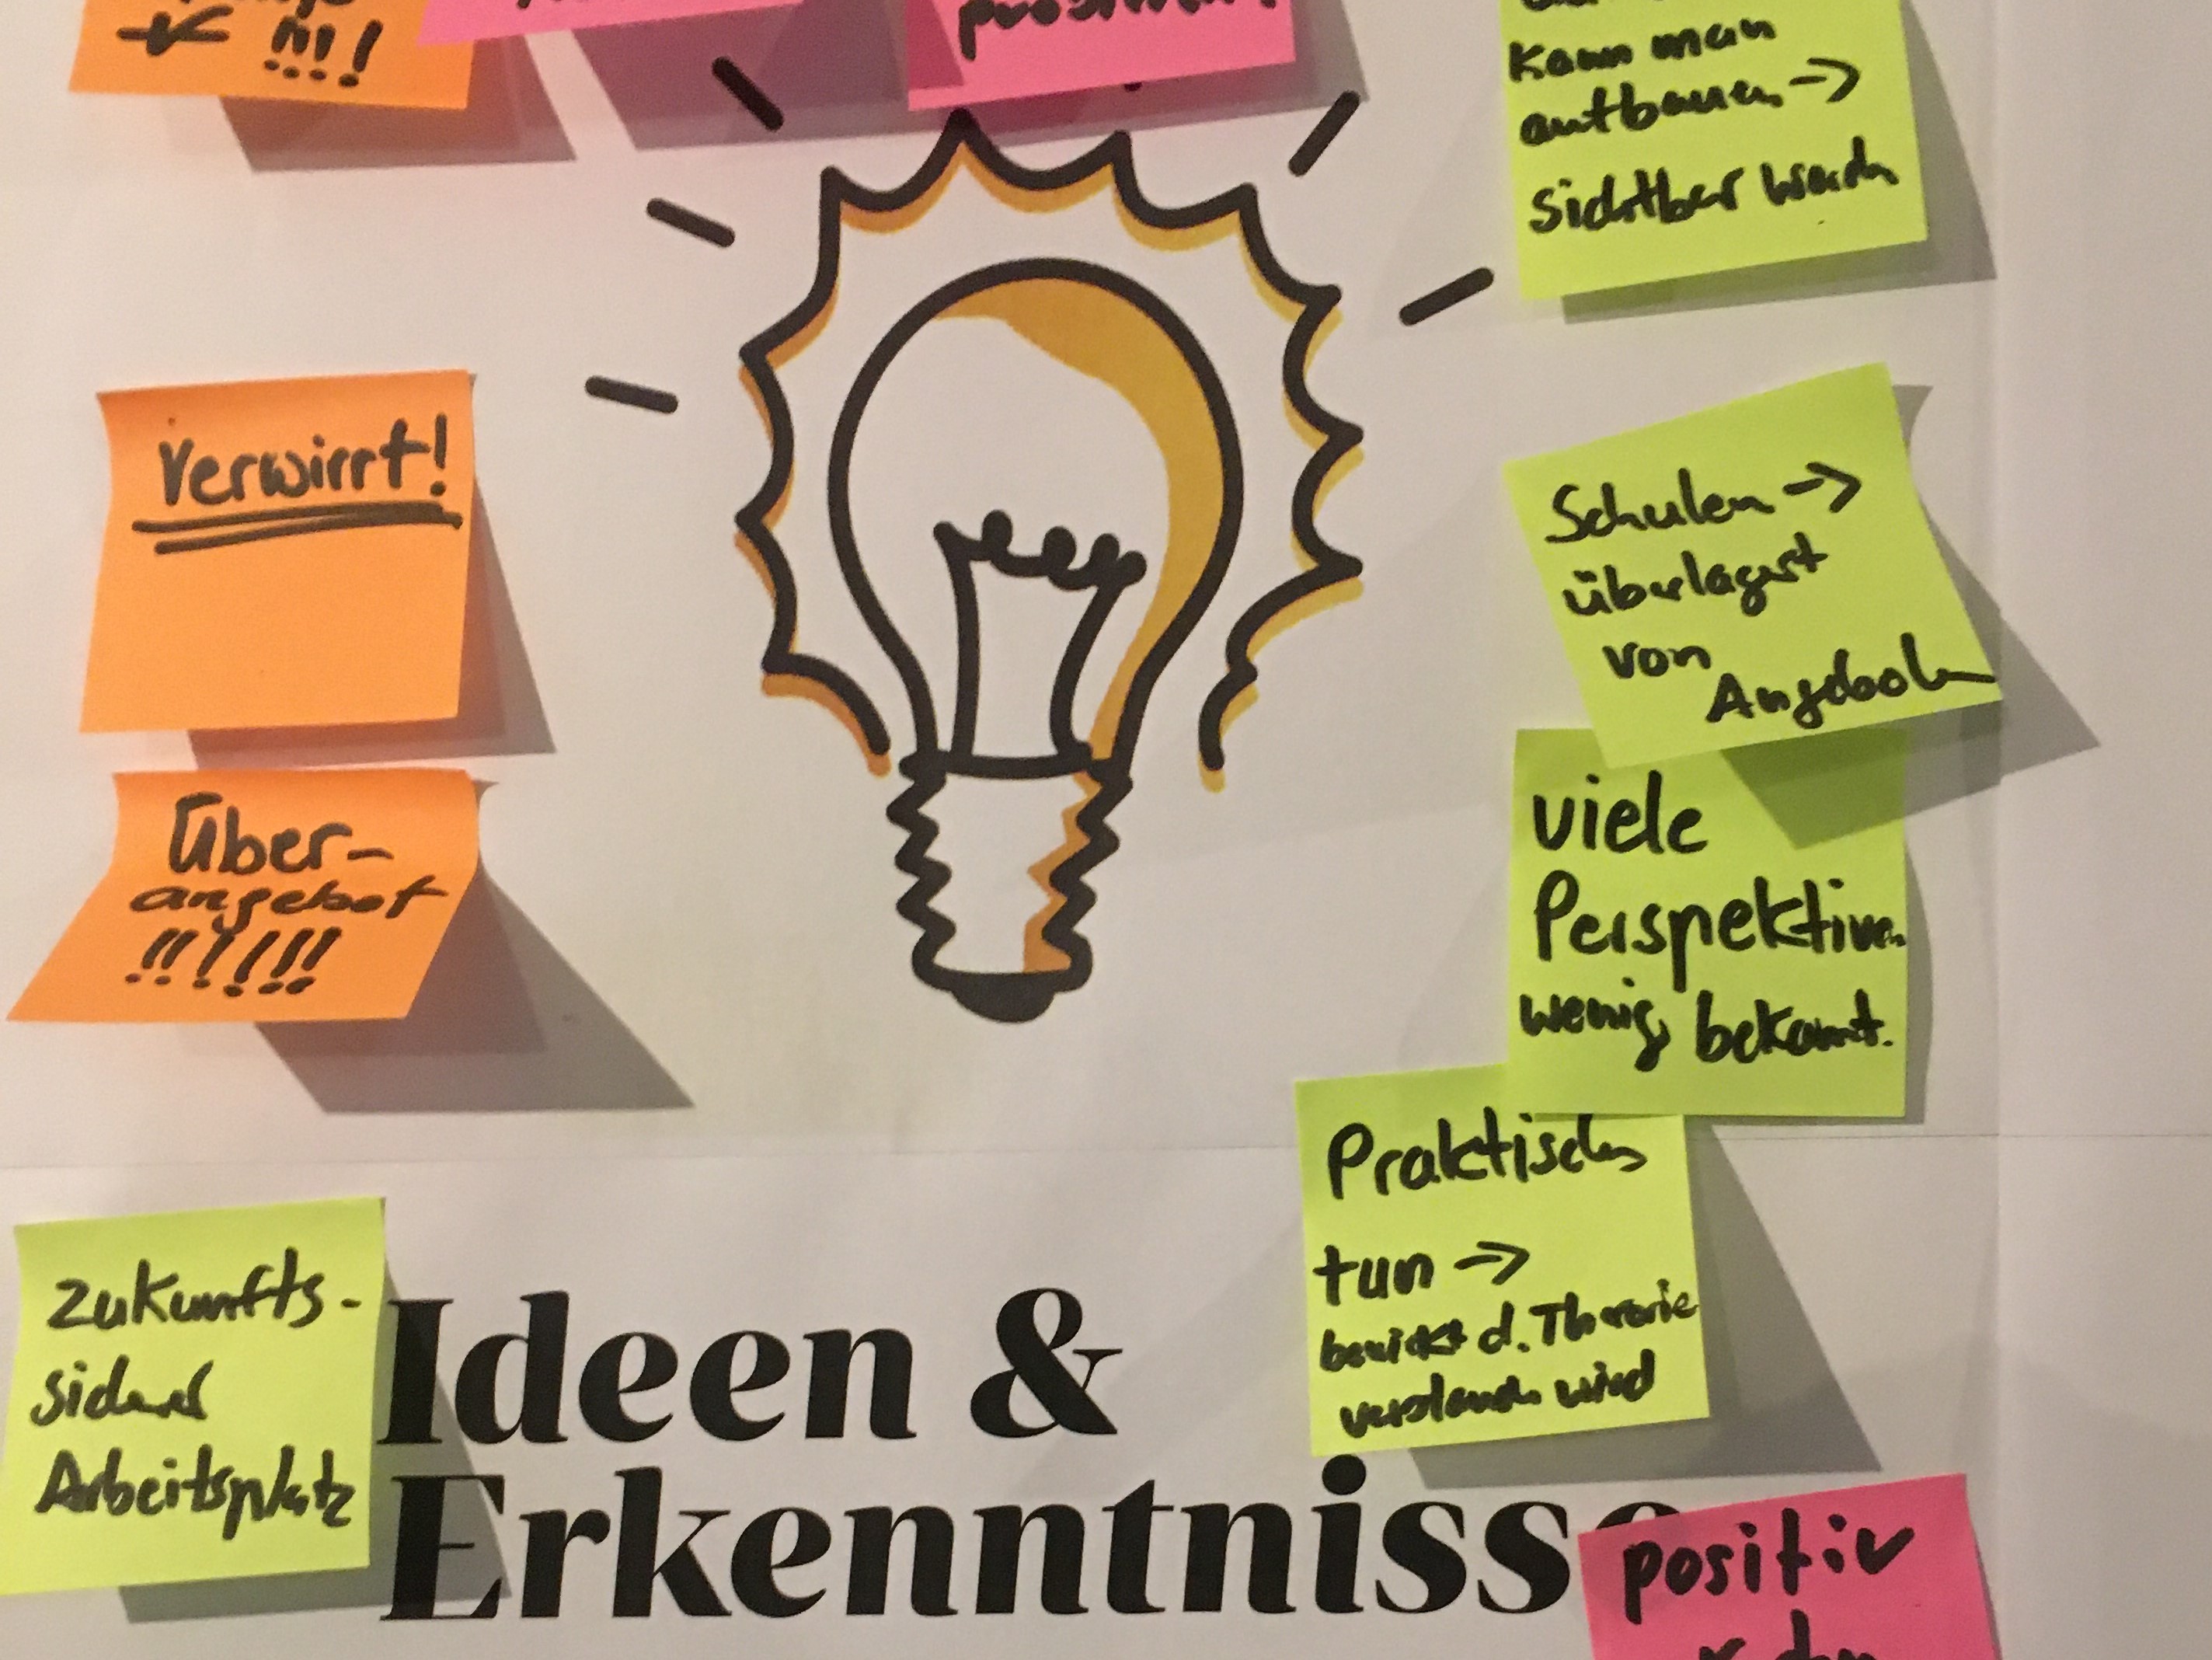 !!!!
Kann man
aufbauen ->
sichtbar werden
verwirrt!
Schulen ->
überlagert
von
Angeboten
Über-
angebot
!!!!!!!
viele
Perspektiven
wenig bekannt.
Praktisches
tun ->
bewirkt d. Theorie
verstanden wird
Zukunfts-
sicherer
Arbeitsplatz
Ideen &
Erkenntnisse
positiv